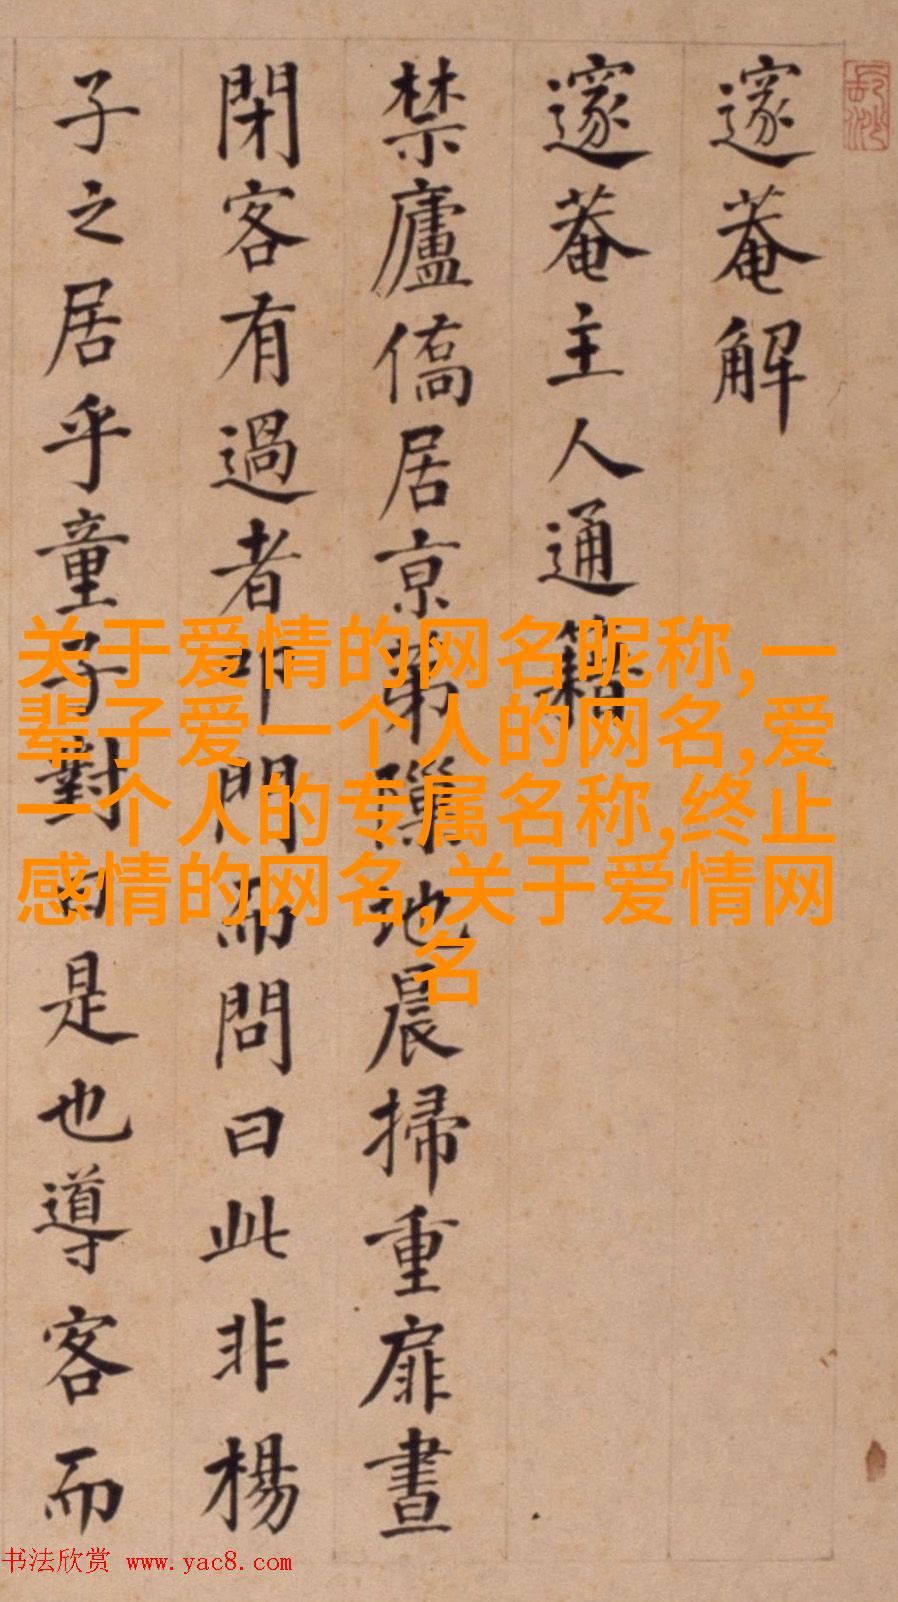 邃菴解
邃菴主人通籍
禁廬僑居京第地晨掃重扉晝
閉客有過者叩門而問曰此非楊
子之居乎童子對曰是也導客而
关于爱情的网名昵称,一
辈子爱一个人的网名,爱
一个人的专属名称,终止
感情的网名,关于爱情网
名
书法欣赏 www.yac8.com